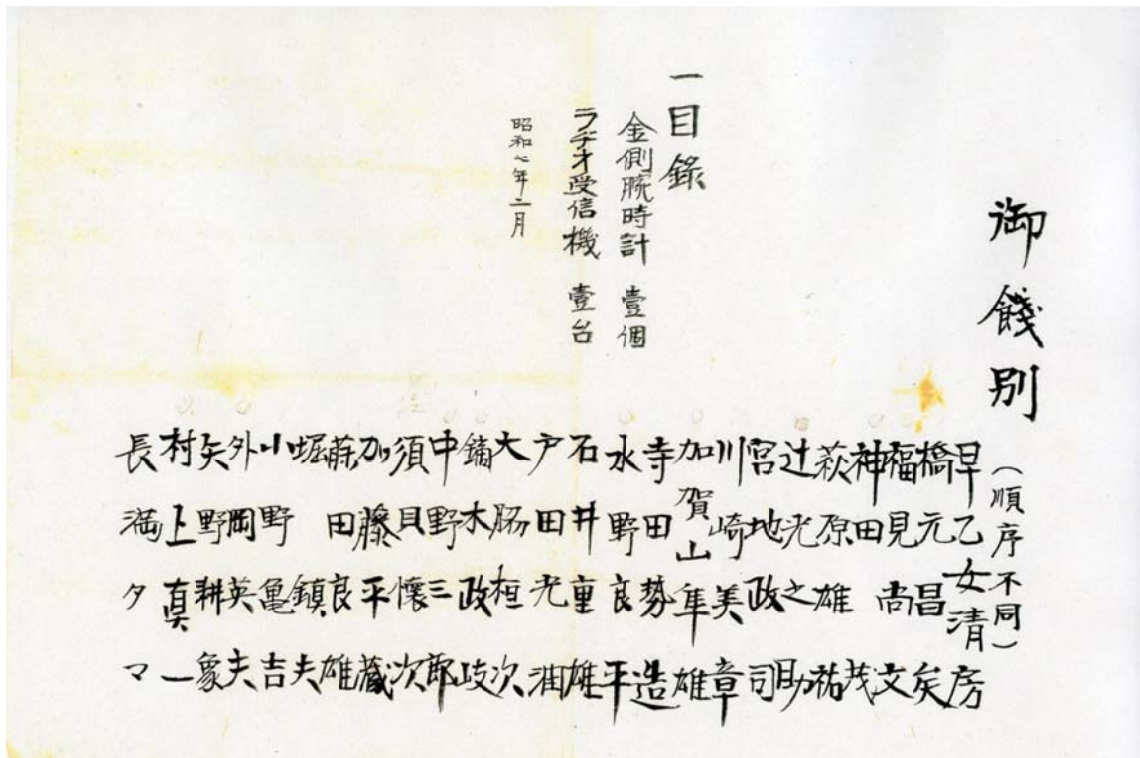 御餞別
一目錄
金側腕時計 壹個
ラヂオ受信機 壹台
昭和七年二月
(順序不同)
早乙女清房
橋元昌矣
福見尚文
神田茂
萩原雄祐
辻光之助
宮地政司
川崎美章
加賀山隼雄
寺田勢造
水野良平
石井重雄
戸田光潤
大脇桓次
鏑木政岐
中野三郎
須貝懐次
加藤平蔵
田良雄
堀鎮夫
小野亀吉
外岡英夫
矢野耕象
村上眞一
長満タマ